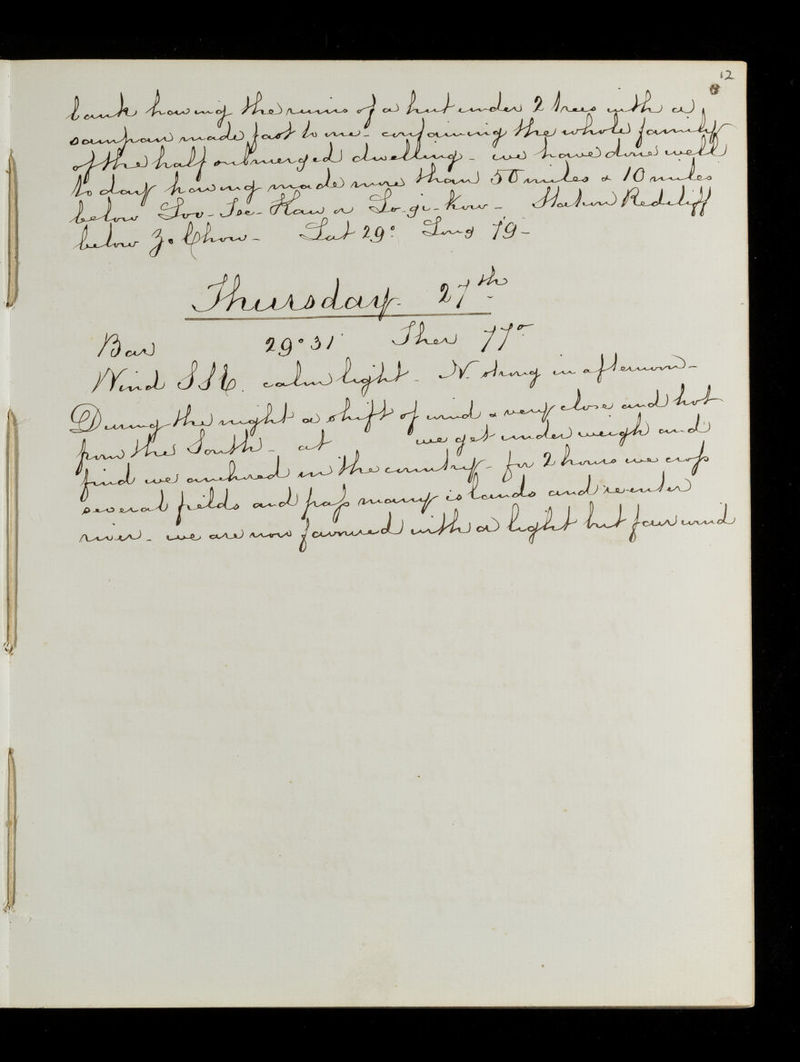 12
bank having the ruins of a hut under 2 trees with a
sampan made fast to one - containing the whole family
of the half submerged dwelling - we have done well
to day having made more than 50 miles & 10 miles
below Loo-See-Kaw or Lo-gi-Kow - Station Redcliff
below Zo Chow - Lat 29° Long 19 -
Thursday 27th
Bar 29° 31 Ther 77°
Wind SSE. calm light - N strong in afternoon -
During the night a shift of wind & very close and hot
from the South - at we get under weigh and
find we anchored in the country - for 2 hours we crofs
several fields and pafs many islands and reenter
river - we are now favoured with a light but fair wind